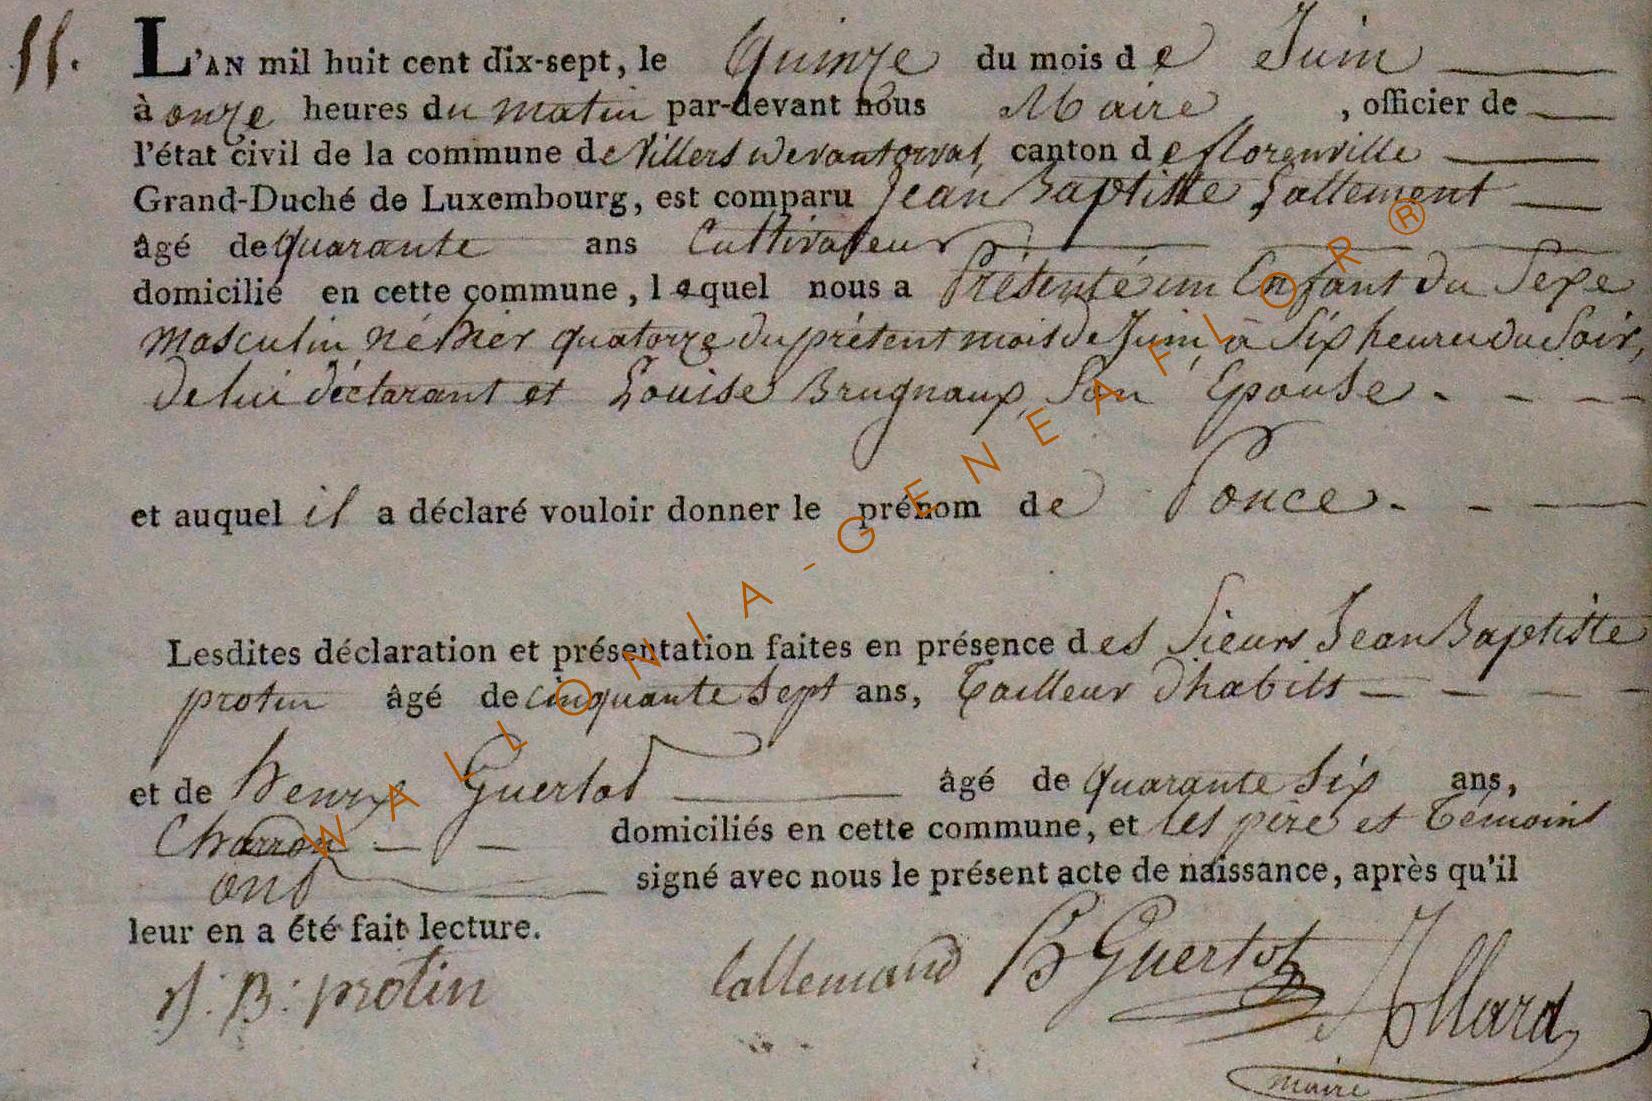 11. L'AN mil huit cent dix-sept, le Quinze du mois de Juin
à onze heures du matin par-devant nous Maire, officier de
l'état civil de la commune de Villers devant orval, canton de florenville
Grand-Duché de Luxembourg, est comparu Jean Baptiste Lallement
âgé de quarante ans Cultivateur
domicilié en cette commune, lequel nous a Présenté un Enfant du Sexe
masculin, né hier quatorze du présent mois de Juin, à Six heures du Soir,
de lui déclarant et Louise Brugnaux, Son Epouse. - - -
et auquel il a déclaré vouloir donner le prénom de Ponce. -
Lesdites déclaration et présentation faites en présence des Sieurs Jean Baptiste
protin âgé de cinquante Sept ans, Tailleur d'habits - - - -
et de henry Guertot âgé de quarante Six ans,
Charron - - domiciliés en cette commune, et les père et Témoins
ont signé avec nous le présent acte de naissance, après qu'il
leur en a été fait lecture.
J: B: protin lallemand h Guertot Allard
maire
WALLONIA-GENEAFLOR®